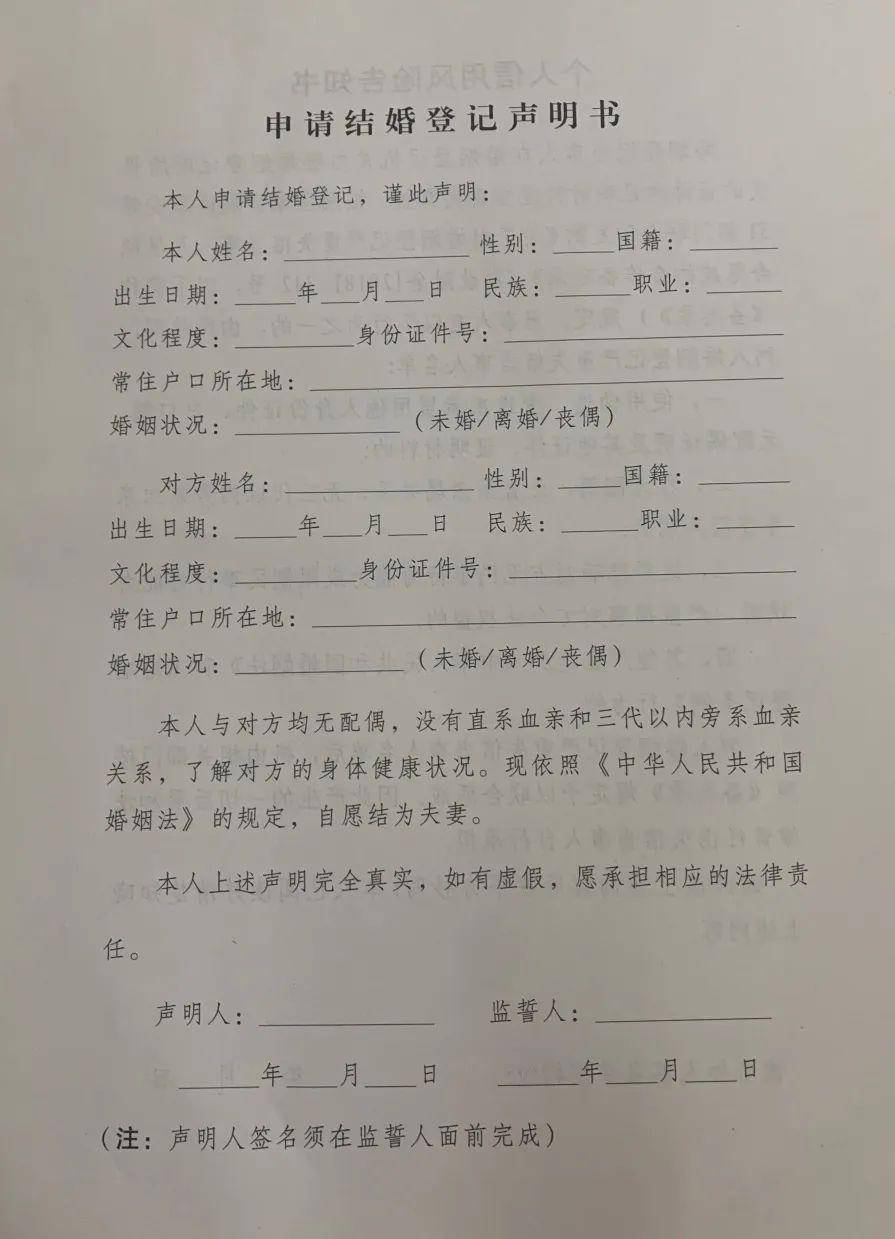 申请结婚登记声明书
本人申请结婚登记，谨此声明：
本人姓名：__________ 性别：____国籍：____
出生日期：____年___月___日 民族：____职业：____
文化程度：________身份证件号：__________
常住户口所在地：____________________
婚姻状况：__________（未婚/离婚/丧偶）
对方姓名：__________ 性别：____国籍：____
出生日期：____年___月___日 民族：____职业：____
文化程度：________身份证件号：__________
常住户口所在地：____________________
婚姻状况：__________（未婚/离婚/丧偶）
本人与对方均无配偶，没有直系血亲和三代以内旁系血亲
关系，了解对方的身体健康状况。现依照《中华人民共和国
婚姻法》的规定，自愿结为夫妻。
本人上述声明完全真实，如有虚假，愿承担相应的法律责
任。
声明人：__________ 监誓人：__________
_____年___月___日 _____年___月___日
（注：声明人签名须在监誓人面前完成）